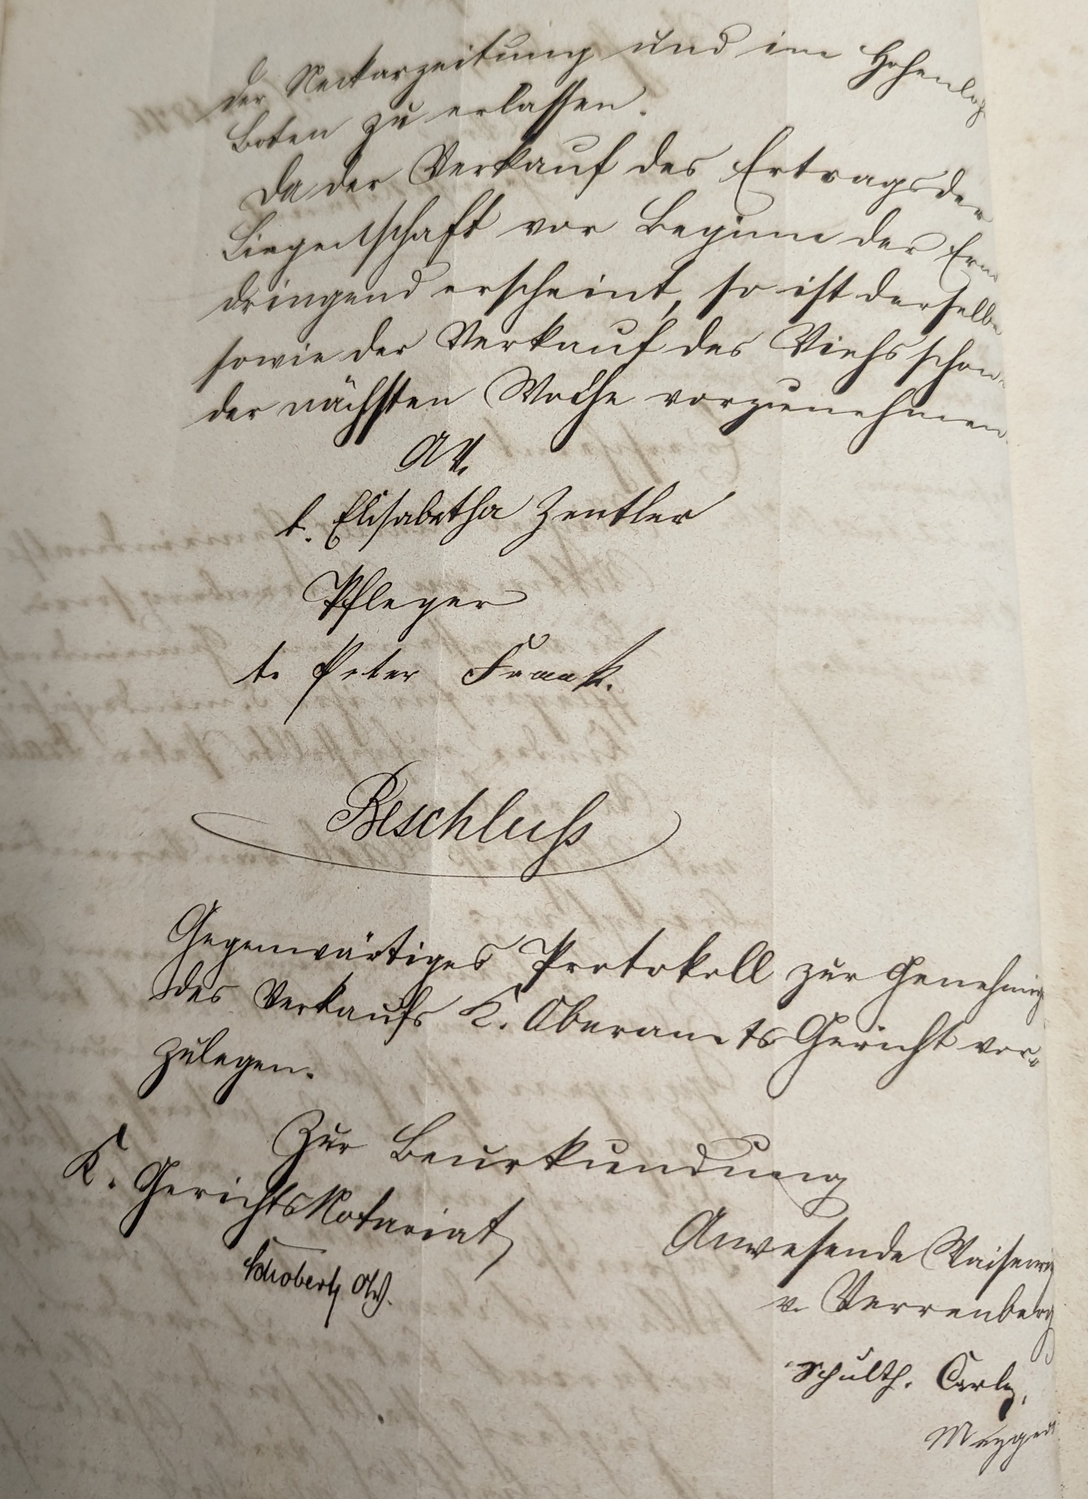 der Neckarzeitung und im Hohenloh
boten zu erlassen.
Da der Verkauf des Ertrags der
Liegenschaft vor Beginn der Ern
dringend erscheint, so ist derselbe
sowie der Verkauf des Viehs schon
der nächsten Woche vorzunehmen.
t. Elisabetha Zentler
Pfleger
t. Peter Frank.
Beschluß
Gegenwärtiges Protokoll zur Genehmig
des Verkaufs K. Oberamts Gericht vor-
zulegen.
Zur Beurkundung
K. Gerichts Notariat
Anwesende Waisenr
v. Verrenberg
Schulth. Carle,